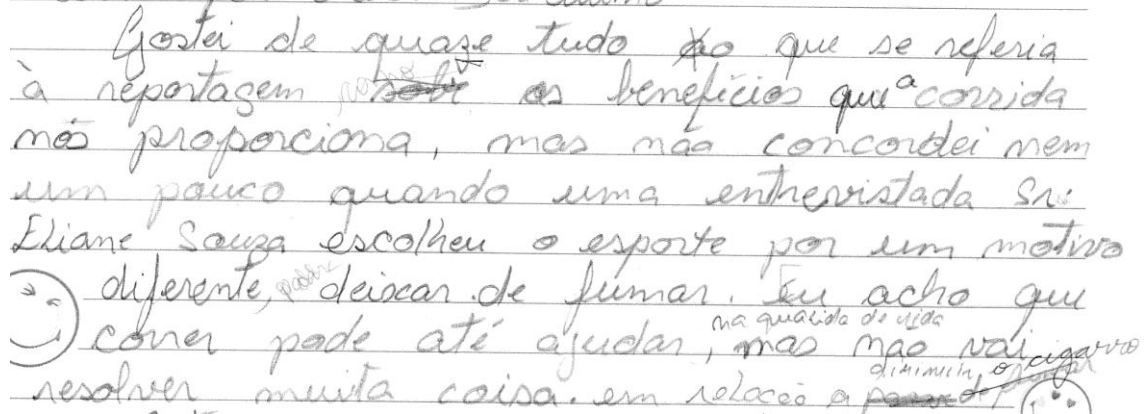 Gostei de quase tudo o que se referia
à reportagem os benefícios que a corrida
nos proporciona, mas não concordei nem
um pouco quando uma entrevistada Sra
Eliane Souza escolheu o esporte por um motivo
diferente, deixar de fumar. Eu acho que
correr pode até ajudar, na qualida de vida mas não vai
resolver muita coisa. em relação a diminuir o cigarro